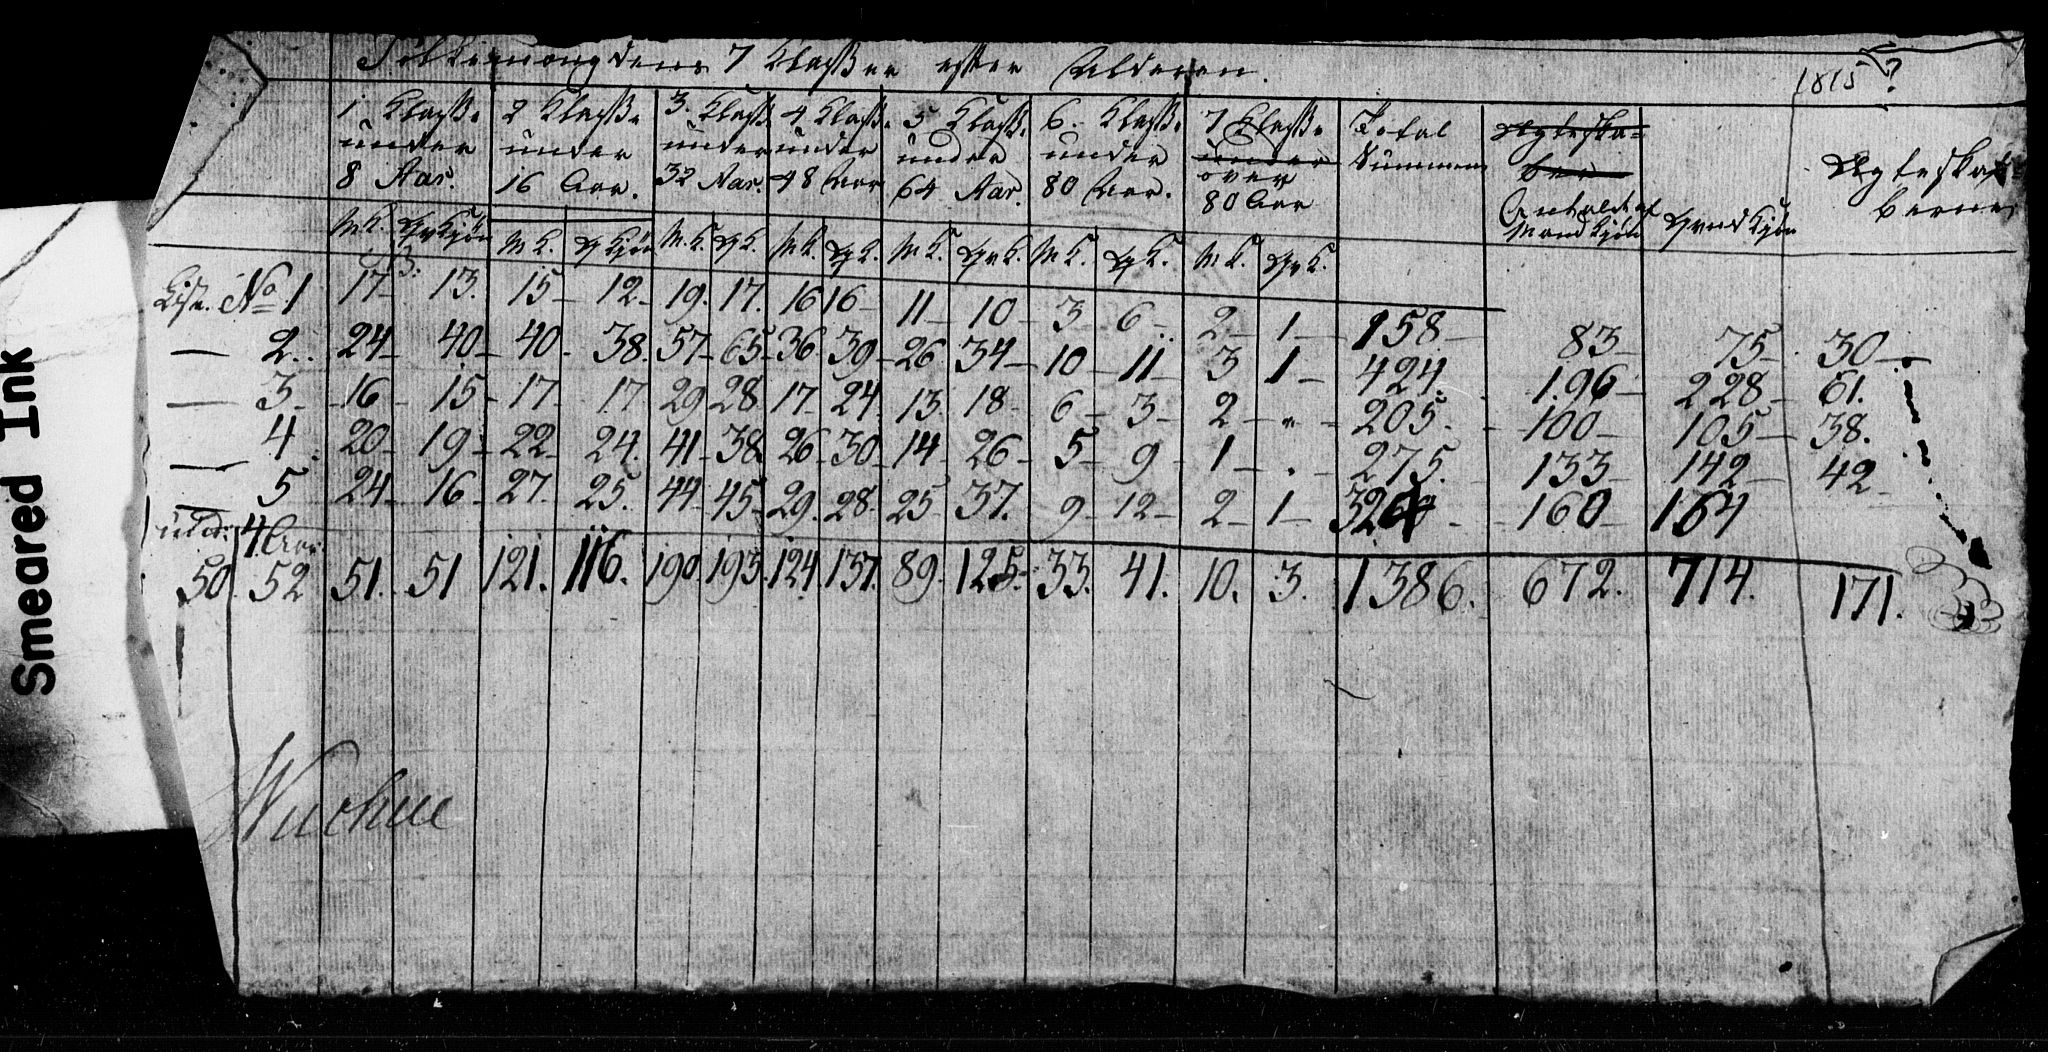 Smeared Ink
Folkemængdens 7 Klasser efter Alderen.
1815?
1 Klasse under 8 Aar.
2 Klasse under 16 Aar.
3. Klasse under 32 Aar.
4 Klasse under 48 Aar
5 Klasse under 64 Aar.
6. Klasse under 80 Aar.
7 Klasse under over 80 Aar
Total Summen
Ægteska= ber
Antallet af Mandkjøn
Qvindkjøn
Ægteskaberne
M K. Qv Kjøn M K. Q Kjøn M. K. Q K. M K. Q K. M K. Qv K. M K. Q K. M K. Qv K.
List. No 1 17 13. 15 12 19. 17. 16 16 11 10 3 6 2 1 158 83 75 30
— 2. 24 40 40 38. 57 65 36 39 26 34 10 11 3 1 424 196 228 61.
— 3 16 15 17 17 29 28 17 24 13 18 6 3 2 " 205. 100 105 38.
— 4 20 19 22 24. 41 38 26 30 14 26 5 9 1 . 275. 133 142 42
— 5 24 16 27. 25. 44 45 29. 28 25 37. 9 12 2 1 324 160 164
und: 4 Aar
50. 52 51. 51 121. 116. 190. 193. 124. 137. 89. 125. 33. 41. 10. 3. 1386. 672. 714. 171.